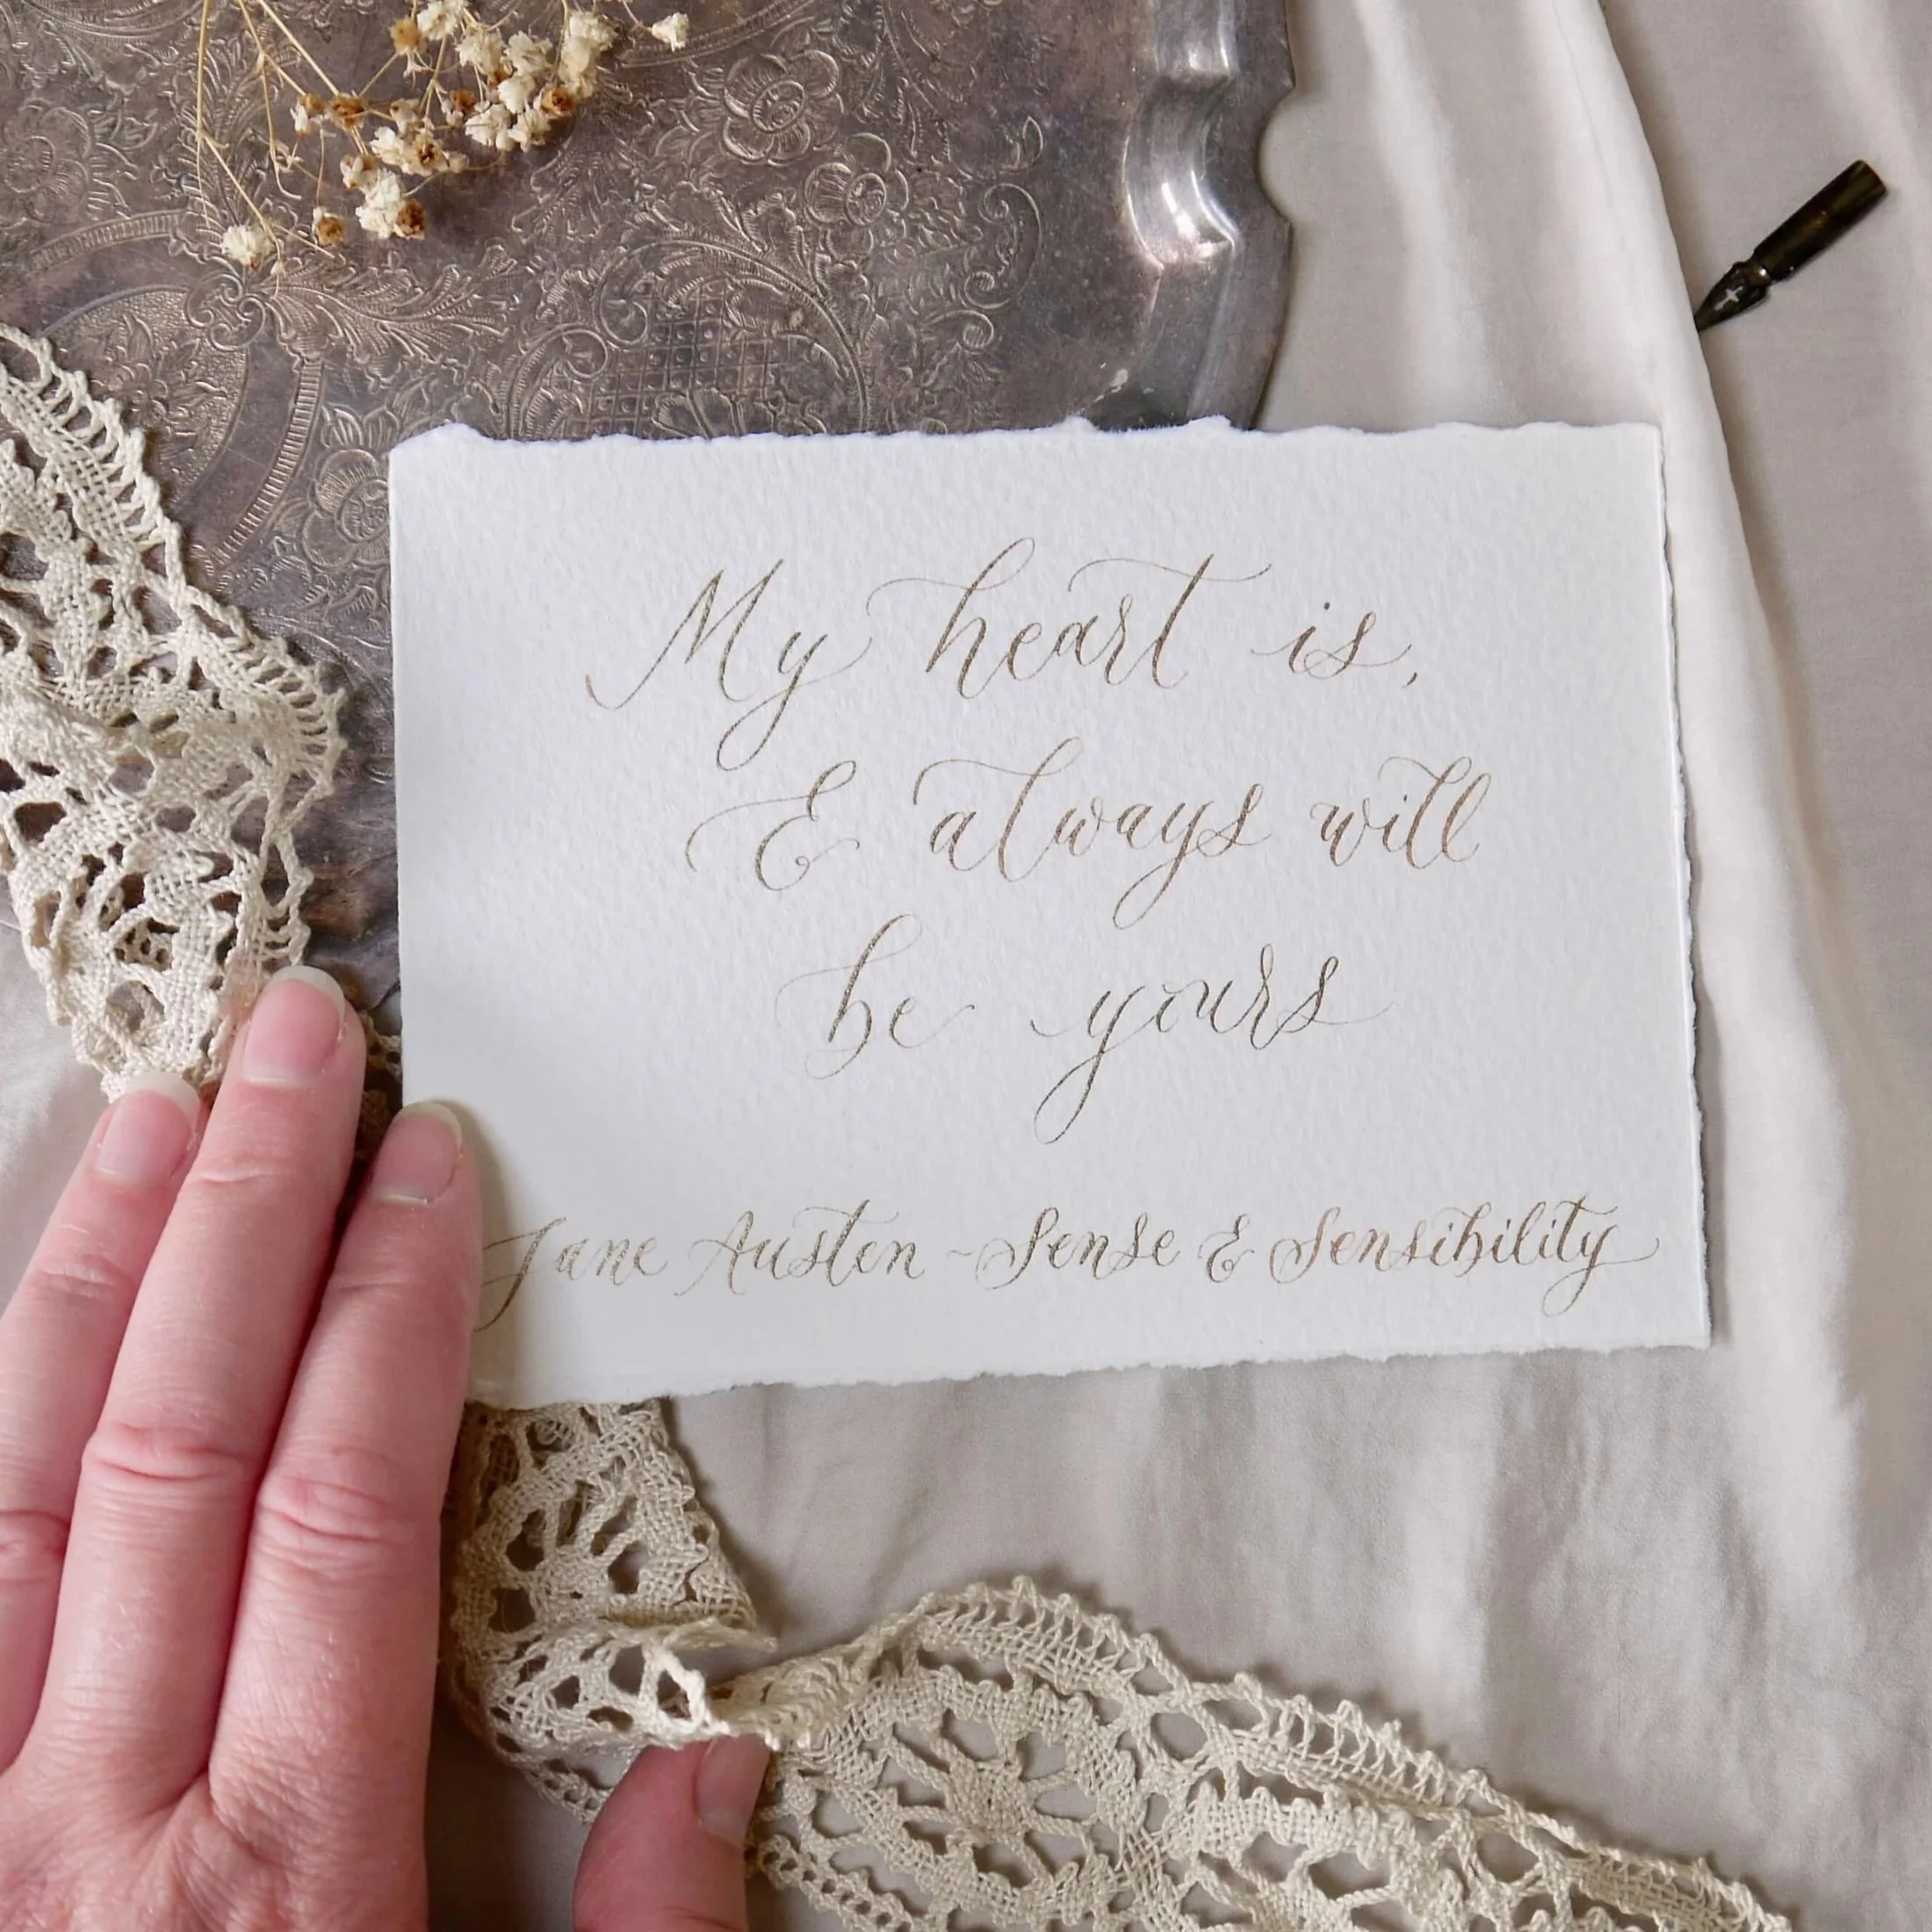 My heart is,
& always will
be yours
Jane Austen ~ Sense & Sensibility